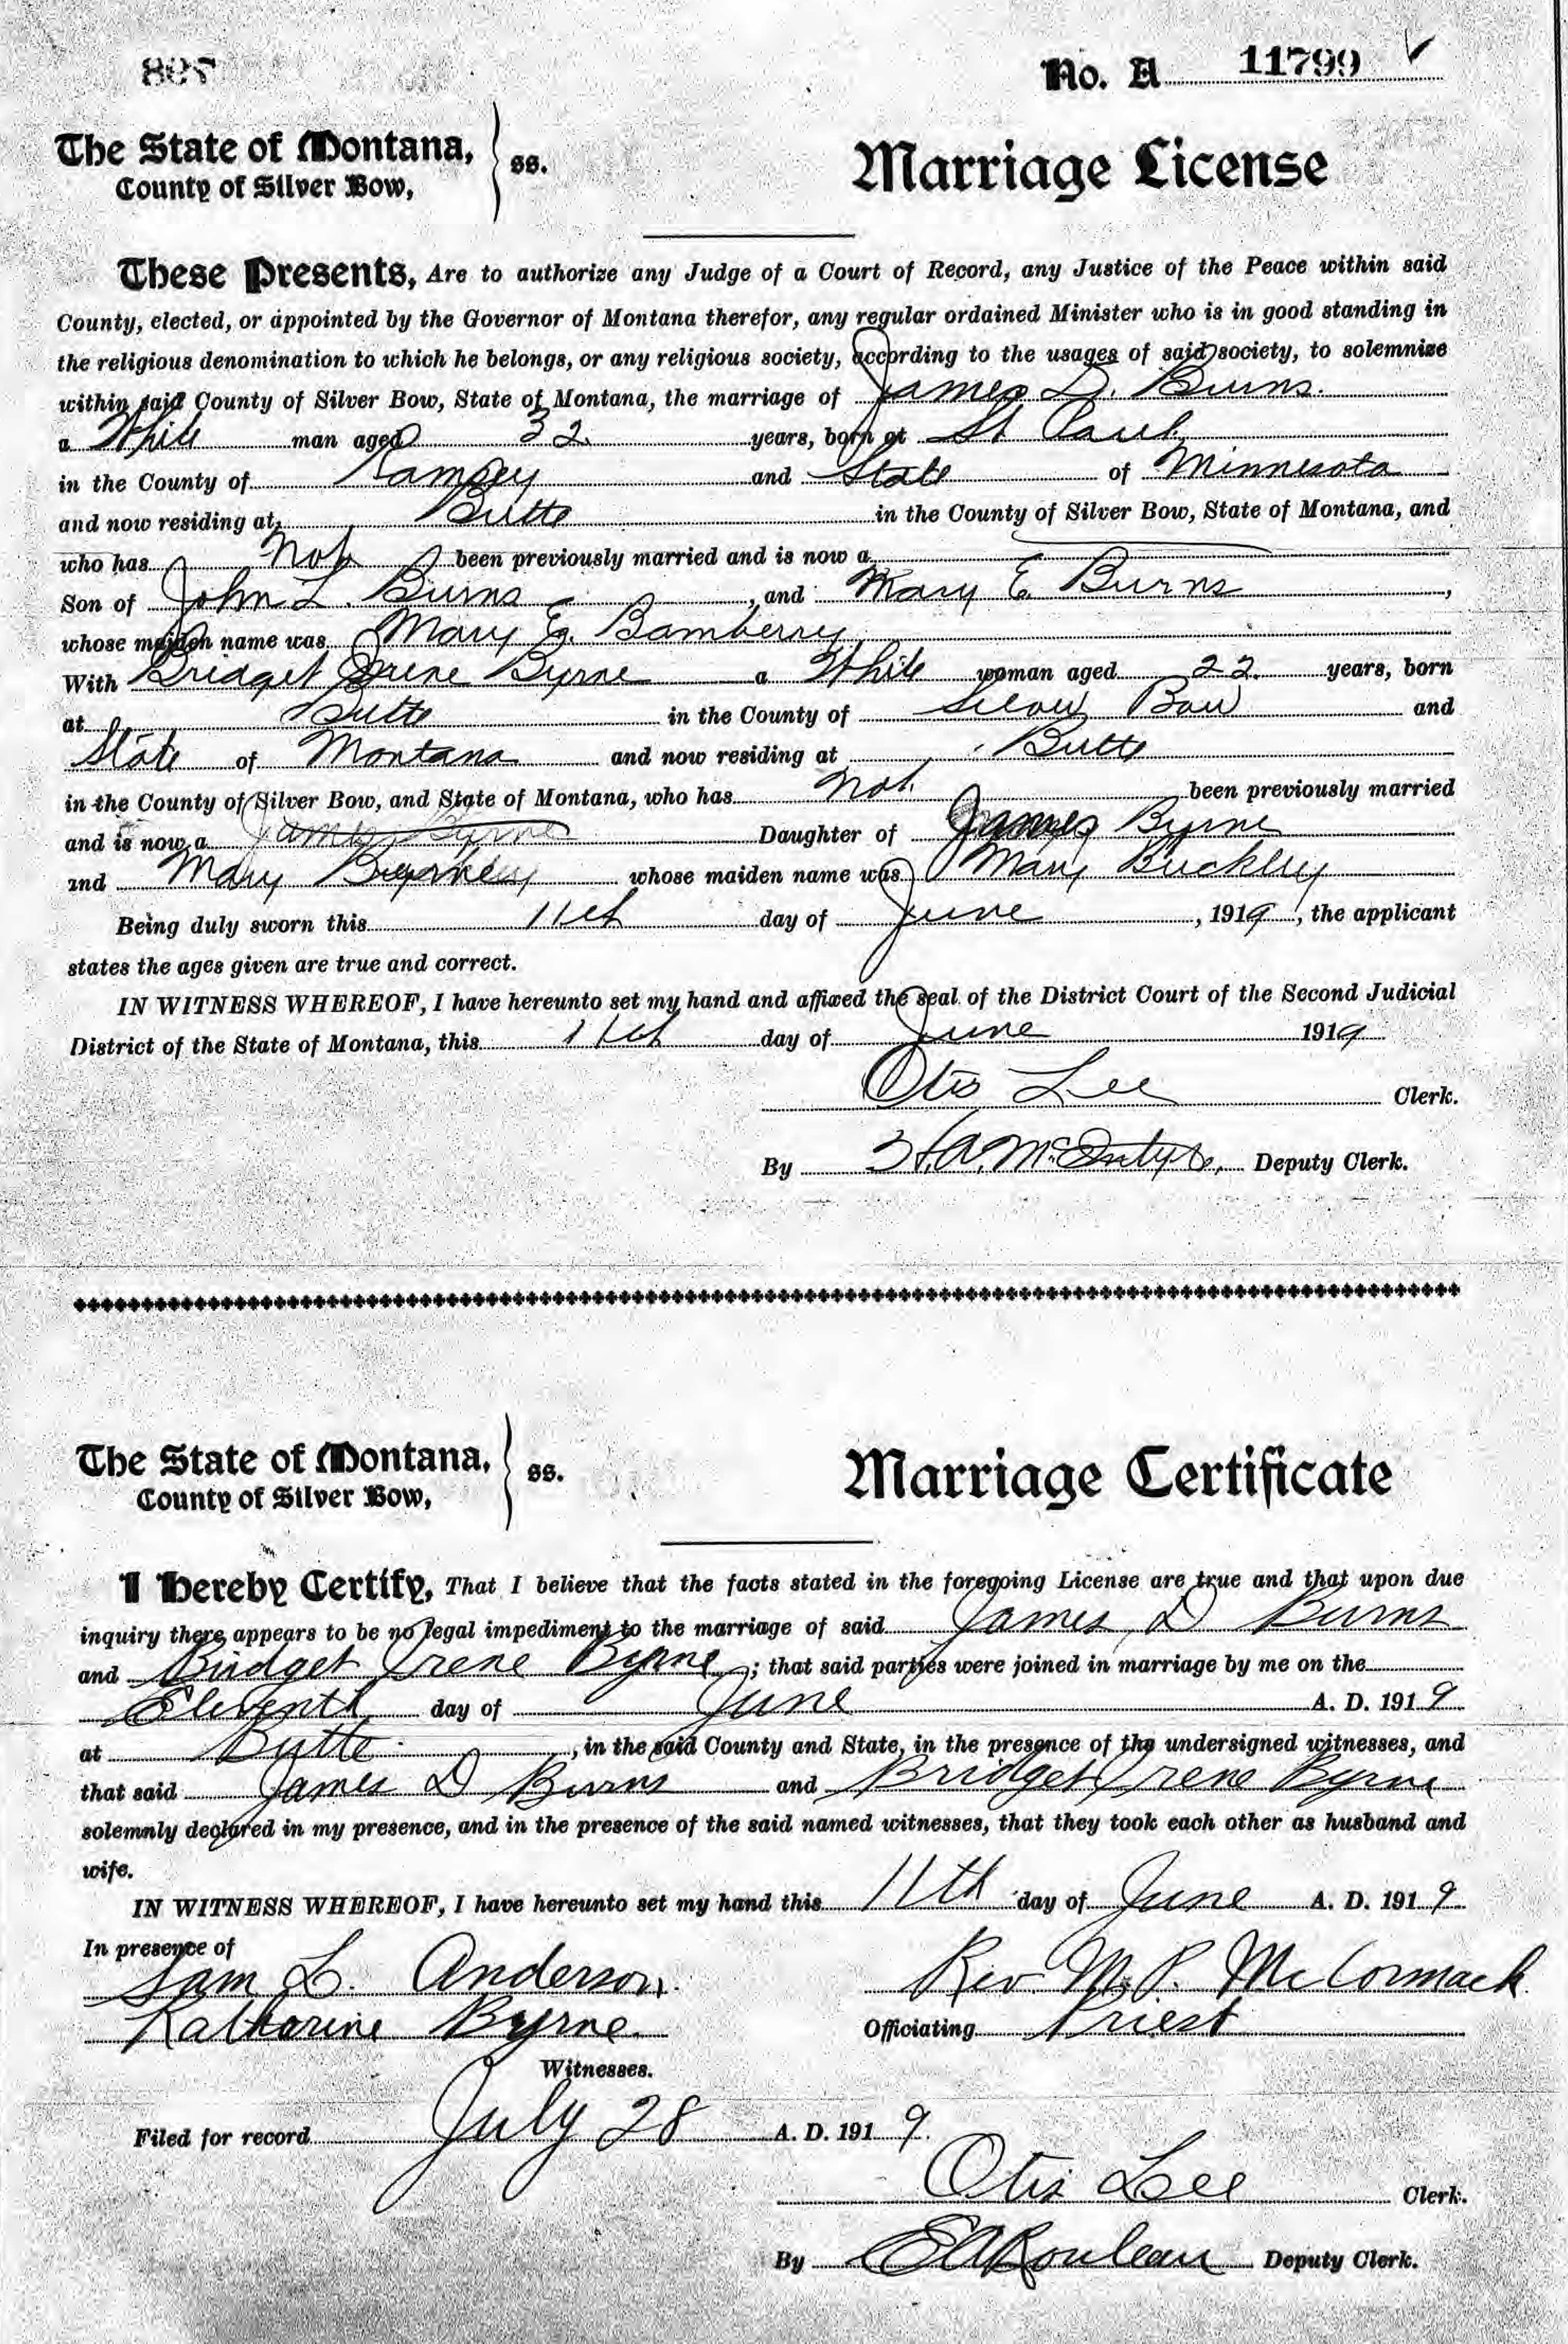 No. A 11799
The State of Montana,
County of Silver Bow, ss.
Marriage License
These Presents, Are to authorize any Judge of a Court of Record, any Justice of the Peace within said
County, elected, or appointed by the Governor of Montana therefor, any regular ordained Minister who is in good standing in
the religious denomination to which he belongs, or any religious society, according to the usages of said society, to solemnize
within said County of Silver Bow, State of Montana, the marriage of James D. Burns.
a White man aged 32 years, born at St Paul
in the County of Ramsey and State of Minnesota
and now residing at Butte in the County of Silver Bow, State of Montana, and
who has not been previously married and is now a
Son of John L. Burns, and Mary E Burns,
whose maiden name was Mary E. Bamberry
With Bridget Irene Byrne a White woman aged 22 years, born
at Butte in the County of Silver Bow and
State of Montana and now residing at Butte
in the County of Silver Bow, and State of Montana, who has not been previously married
and is now a James Byrne Daughter of James Byrne
and Mary whose maiden name was Mary Buckley
Being duly sworn this 11th day of June, 1919, the applicant
states the ages given are true and correct.
IN WITNESS WHEREOF, I have hereunto set my hand and affixed the seal of the District Court of the Second Judicial
District of the State of Montana, this 11th day of June 1919
Otis Lee Clerk.
By McIntyre, Deputy Clerk.
The State of Montana,
County of Silver Bow, ss.
Marriage Certificate
I Hereby Certify, That I believe that the facts stated in the foregoing License are true and that upon due
inquiry there appears to be no legal impediment to the marriage of said James D Burns
and Bridget Irene Byrne; that said parties were joined in marriage by me on the
Eleventh day of June A. D. 1919
at Butte, in the said County and State, in the presence of the undersigned witnesses, and
that said James D Burns and Bridget Irene Byrne
solemnly declared in my presence, and in the presence of the said named witnesses, that they took each other as husband and
wife.
IN WITNESS WHEREOF, I have hereunto set my hand this 11th day of June A. D. 1919
In presence of
Sam L. Anderson Rev. M. P. McCormack
Katharine Byrne. Officiating Priest
Witnesses.
Filed for record July 28 A. D. 1919.
Otis Lee Clerk.
By E A Rouleau Deputy Clerk.